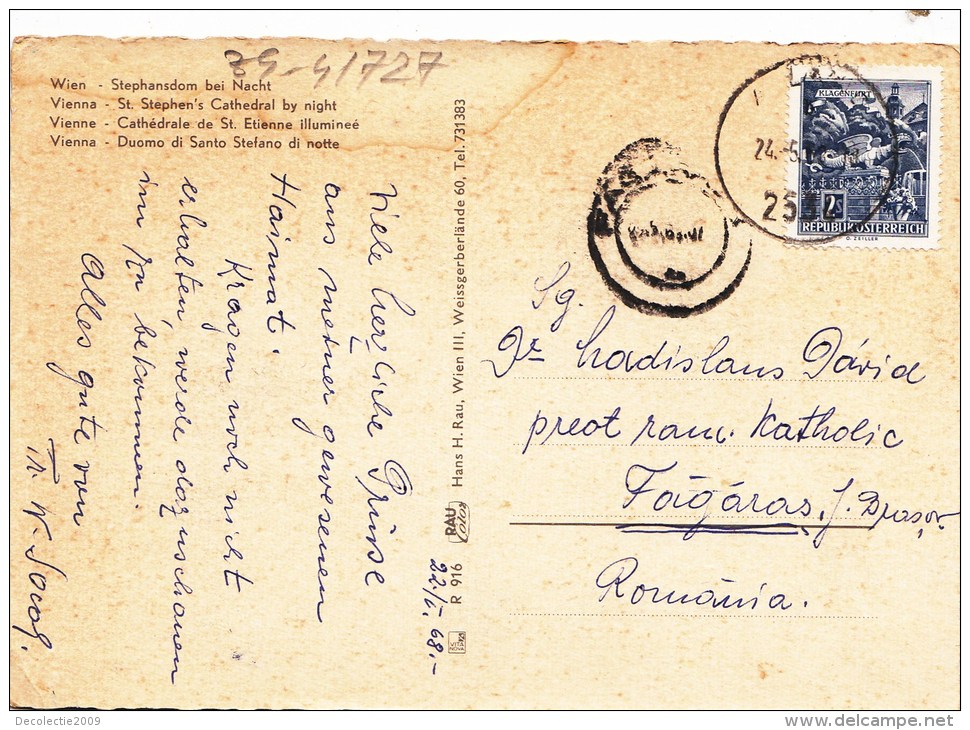 39-41727
Wien - Stephansdom bei Nacht
Vienna - St. Stephen's Cathedral by night
Vienne - Cathédrale de St. Etienne illumineé
Vienna - Duomo di Santo Stefano di notte
Viele herzliche Grüsse
aus meiner gewesenen
Haimat.
Kragen noch nicht
erhalten, werde dazuschauen
im zu bekommen.
Alles gute vom
W. Socol.
22/5. 68.-
R 916 RAU Color Hans H. Rau, Wien III, Weissgerberlände 60, Tel. 731383
VITA NOVA
KLAGENFURT
2s
REPUBLIK ÖSTERREICH
O. ZEILLER
24.-5.
253
Sg.
Dr Ladislaus Dávid
preot rom. Katholic
Făgăraș, J. Brașov
România.
Decolectie2009
www.delcampe.net